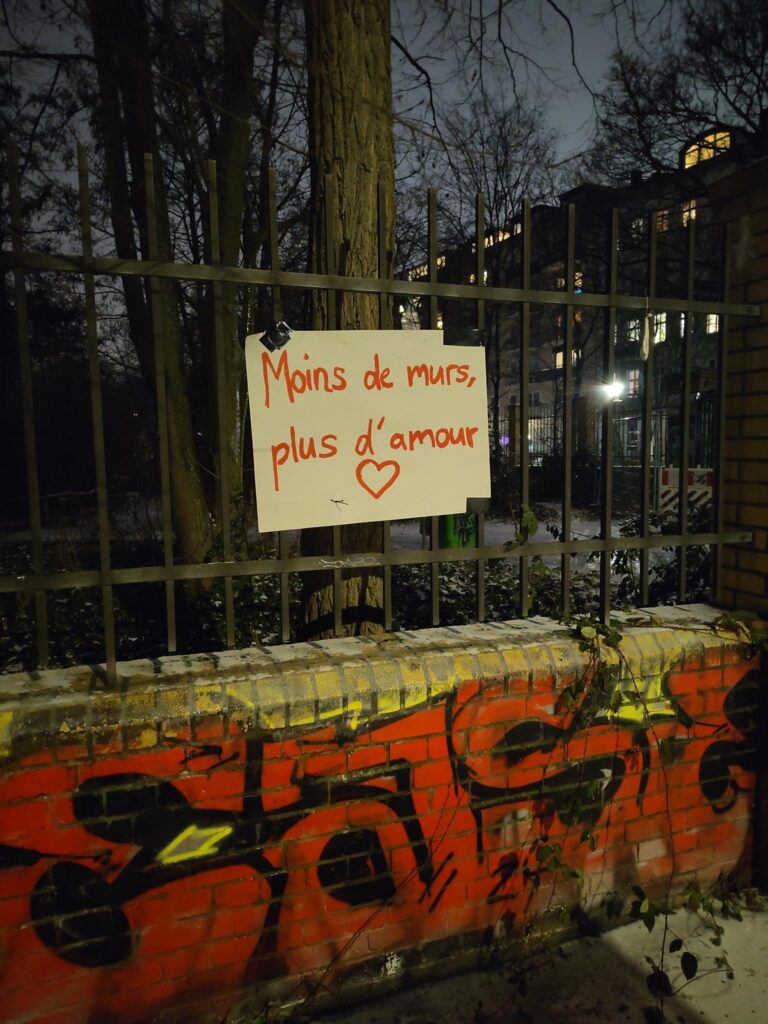 Moins de murs,
plus d'amour